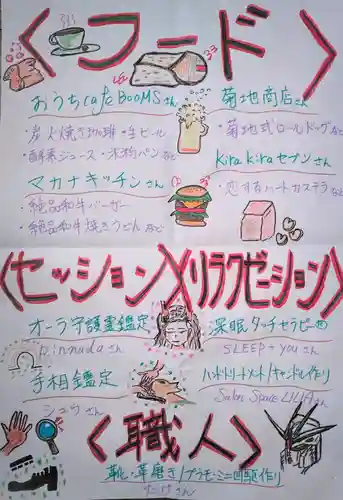 <フード>
おうちcafe BOOMSさん
・炭火焼き珈琲・生ビール
・酵素ジュース・米粉パンなど
マカナキッチンさん
・絶品和牛バーガー
・絶品和牛焼きうどんなど
菊地商店さん
・菊地式ロールドッグなど
Kira Kiraセブンさん
・恋するハートカステラなど
<セッション>
オーラ守護霊鑑定
さん
手相鑑定
シュウさん
<リラクゼーション>
深眠タッチセラピー®
SLEEP+youさん
ハンドトリートメント/キャンドル作り
Salon Space LILIAさん
<職人>
靴・革磨き/プラモ・ミニ四駆作り
さん